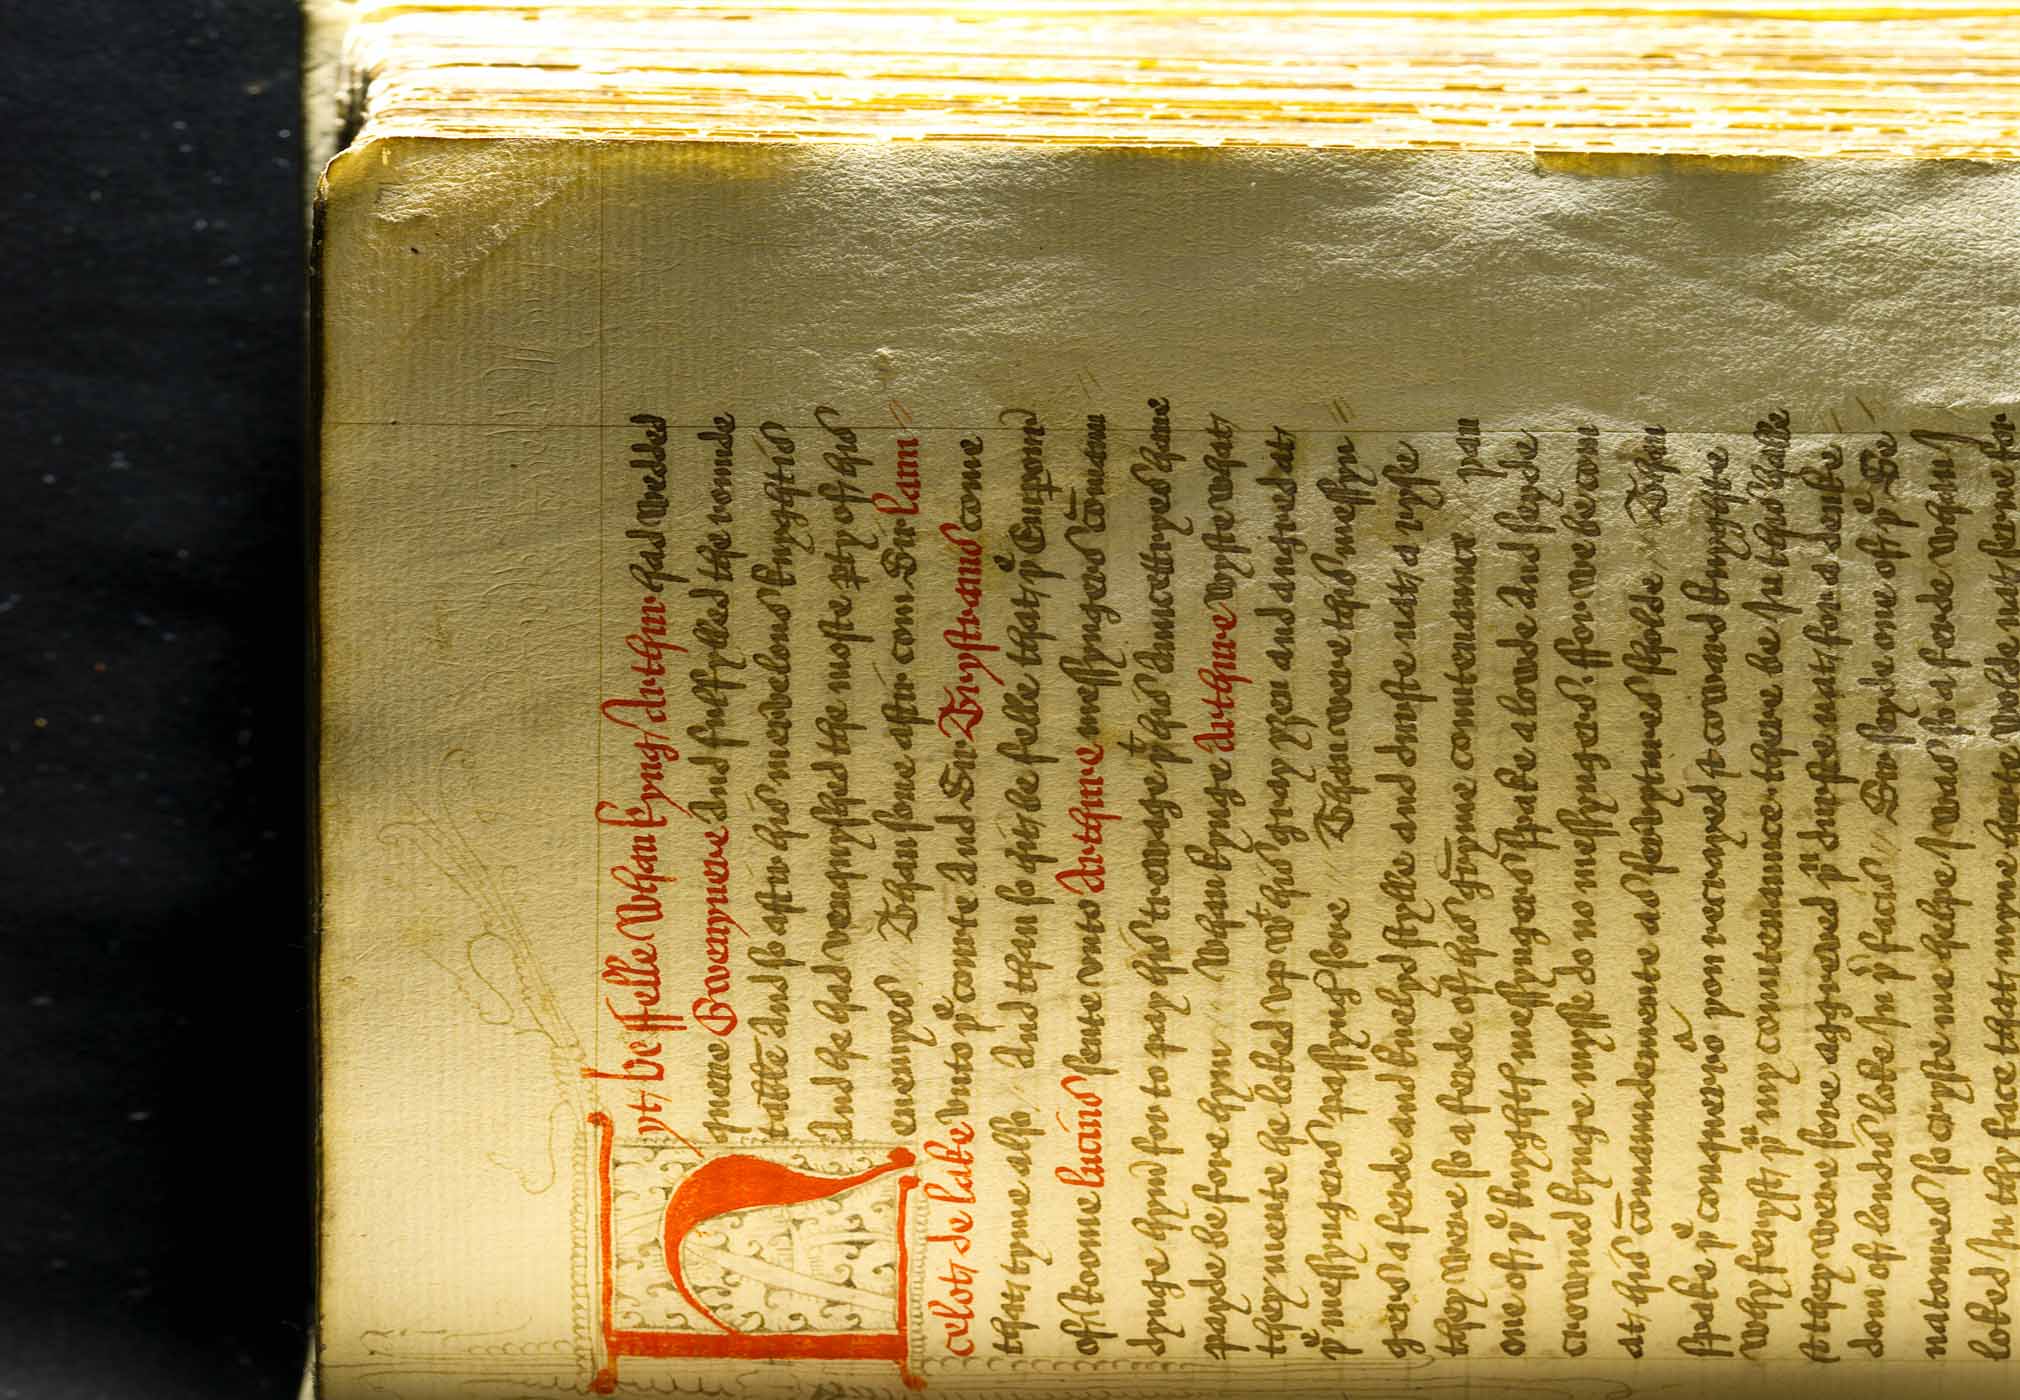 Hyt be ffelle whan kyng Arthur had wedded
quene Gwenyuere And fulfylled the rounde
table And so aftir his mervelous knyghtis
And he had venquyshed the moste pty of his
enemyes // Than sone aftir com Sir laun
celot de lake vnto þe courte And Sir Trystrams come
that tyme also // And than so hit be felle that þe Empour
of Roome lucius sente vnto Arthure messyngers coman
dynge hym for to pay his trewage þt his Auncettryes haue
payde be fore hym // Whan kynge Arthure wyste what
they mente he loked vp wt his gray yȝen and angred at
þe messyngers passyng sore // Than were this messyn
gers a ferde and knelyd stylle and durste nat a ryse
they were so a ferde of his grymme countenaunce
one of þe knyghts messyngers spake alowde And seyde
crowned kynge mysse do no messyngers. ffor we be com
at his comaundemente as servytures sholde // Than
spake þe conquerro þou recrayed & coward knyghte
why feryst þu my countenaunce there be In this halle
& they were sore aggreved þu durste nat for a deuke
dom of londis loke In þr facis // Sir seyde one of þe Se
natoures so cryste me helpe I was so a ferde whan I
loked In thy face that myne herte wolde nat serve for